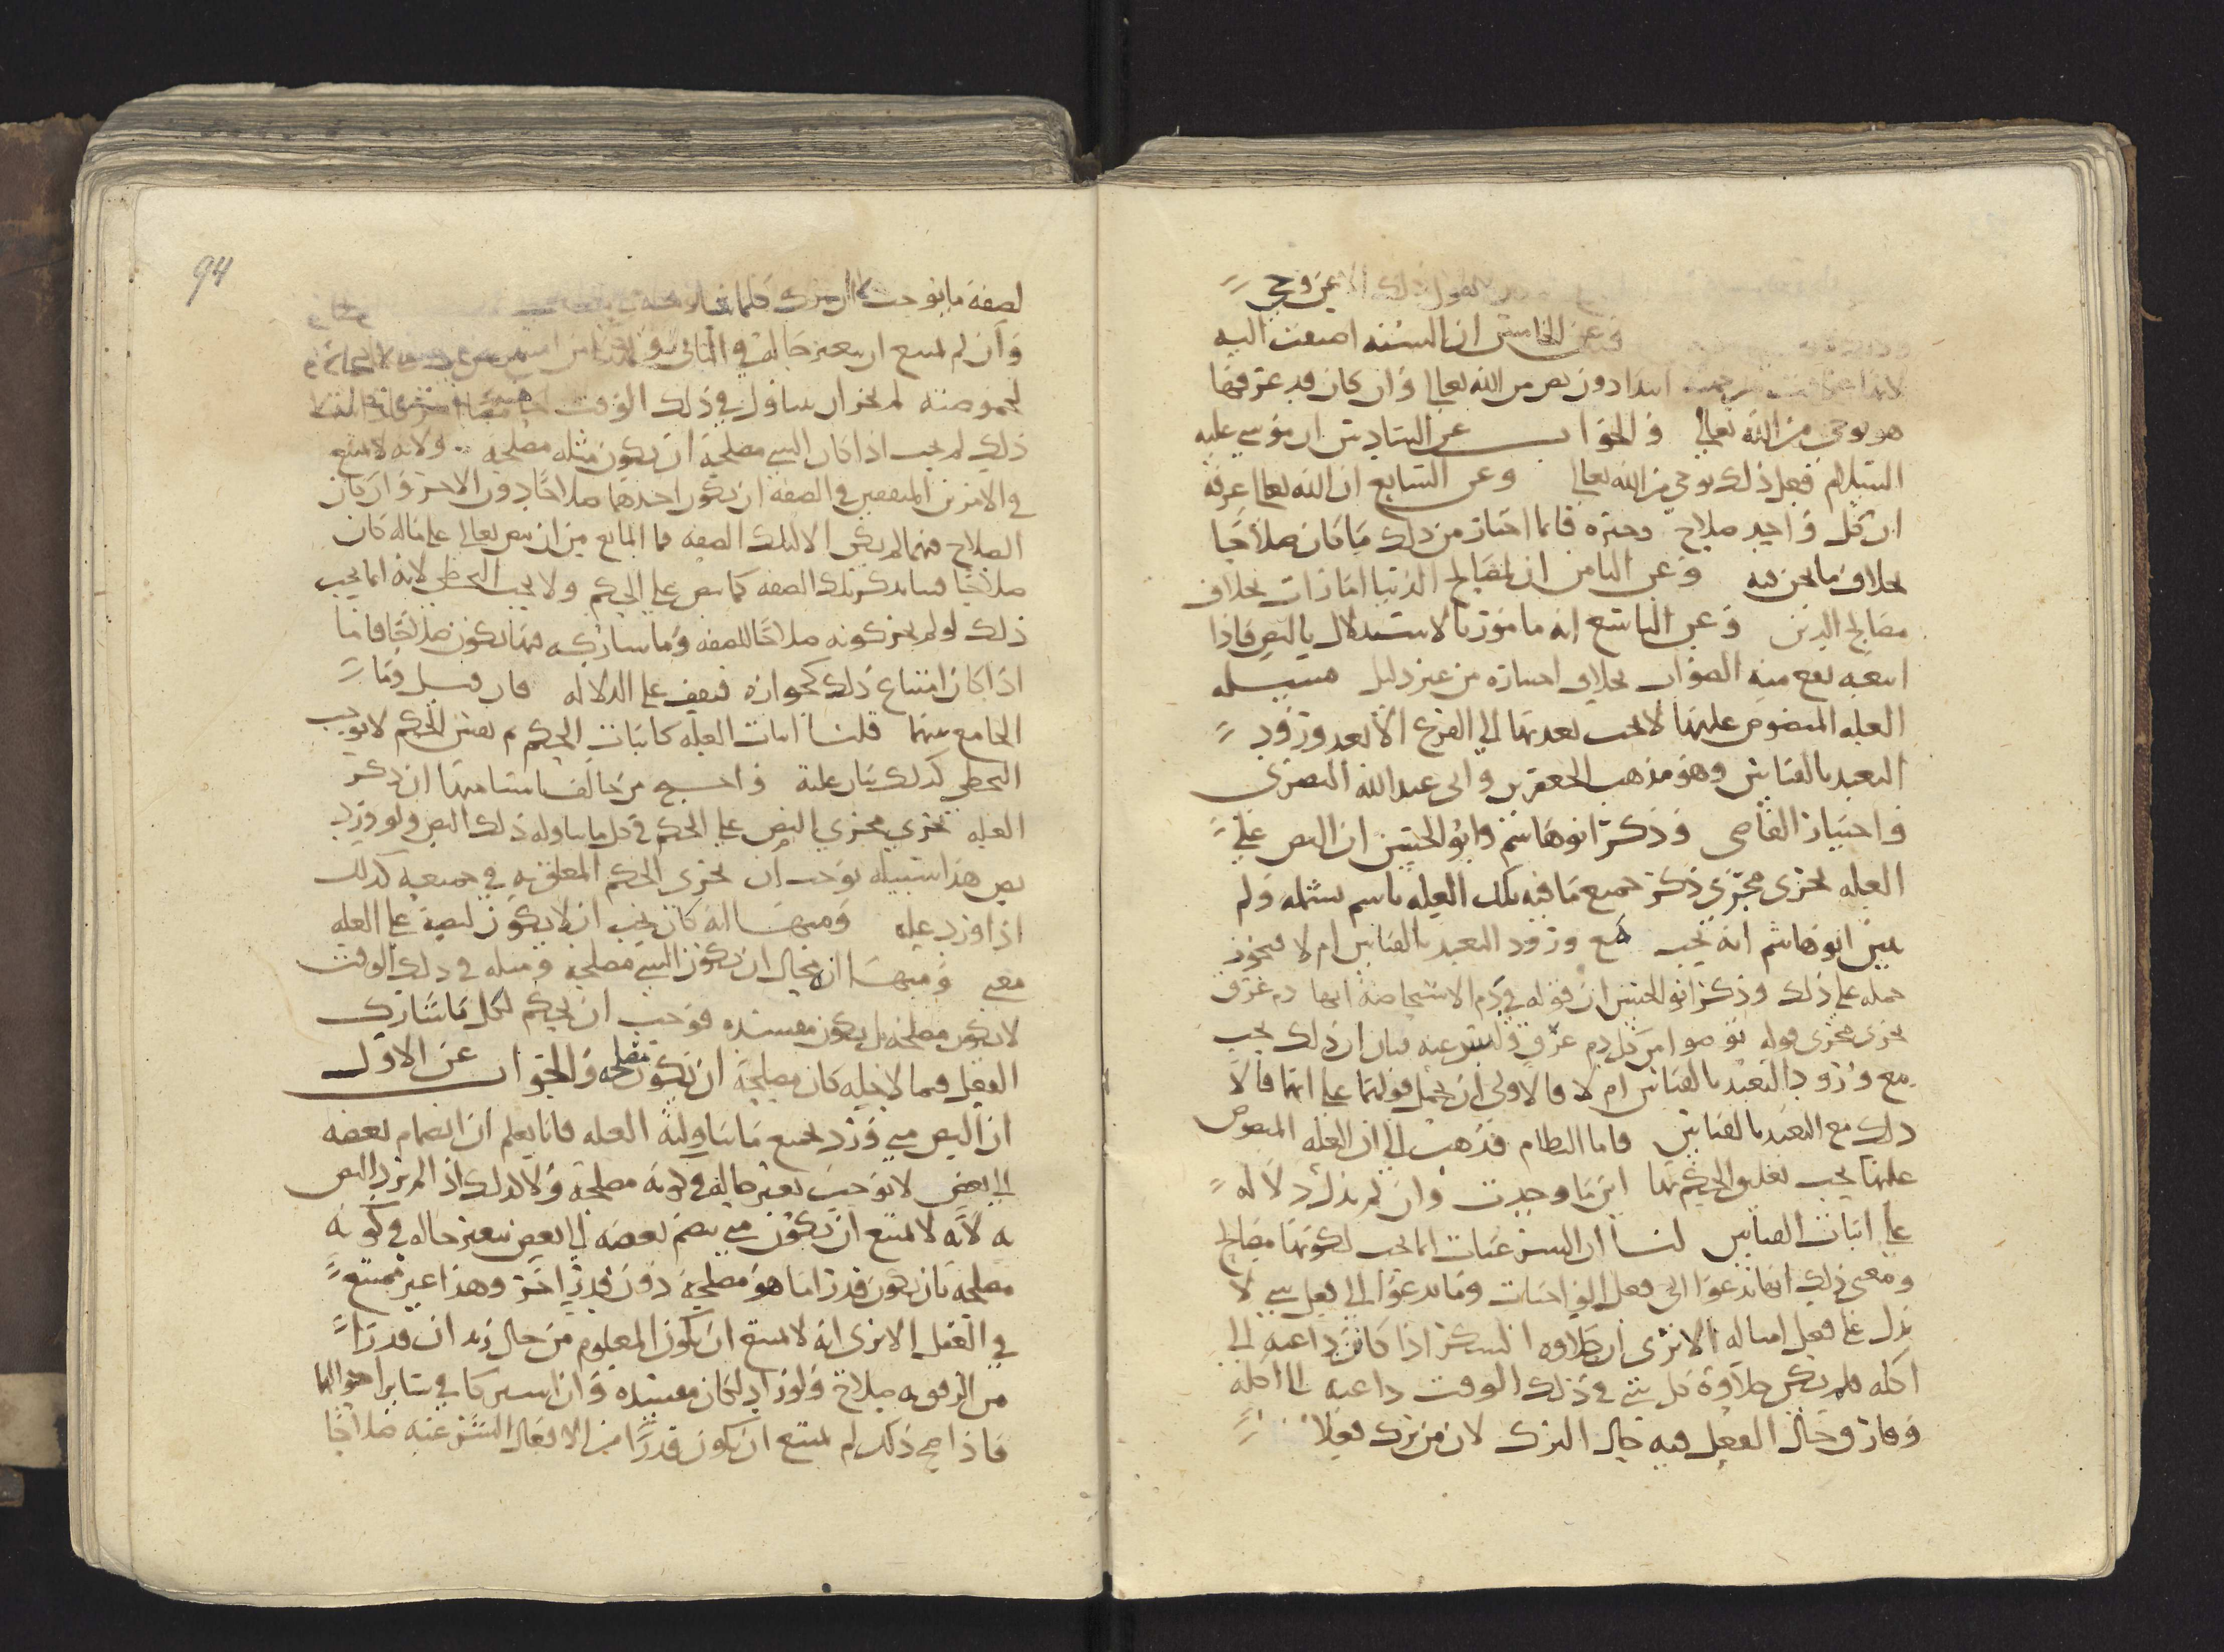 عن وحي
وعن الخامس ان السنه اضيفت اليه
ابتدا دون نص من الله تعالى وان كان قد عرفها
هو بوحي من الله تعالى والجواب عن السادس ان موسى عليه
السلام فعل ذلك بوحي من الله تعالى وعن السابع ان الله تعالى عرفه
ان كل واحد صلاح وخيره فانما اختار من ذلك ما كان صلاحا
بخلاف ما نحن فيه وعن الثامن ان لمصالح الدنيا امارات بخلاف
مصالح الدين وعن التاسع انه مامور بالاستدلال بالنص فاذا
اتبعه يقع منه الصواب بخلاف اختياره من غير دليل مسله
العله المنصوص عليها لا يجب تعديتها الى الفرع الا بعد ورود
التعبد بالقياس وهو مذهب الجعفرين وابي عبد الله البصري
واختيار القاضي وذكر ابو هاشم وابو الحسين ان النص على
العله يجري مجرى ذكر جميع ما فيه تلك العله باسم يشمله ولم
يبين ابو هاشم انه يجب مع ورود التعبد بالقياس ام لا فيجوز
حمله على ذلك وذكر ابو الحسين ان قوله في دم الاستحاضة انها دم عرق
يجري مجرى قوله توضوا من كل دم عرق وليس عنه بيان ان ذلك يجب
مع ورود التعبد بالقياس ام لا فالاولى ان يحمل قولهما على انهما قالا
ذلك مع التعبد بالقياس فاما النظام فذهب الى ان العله المنصوص
عليها يجب تعليق الحكم بها اين ما وجدت وان لم يدل دلاله
على اثبات القياس لنا ان الشرعيات انما تجب لكونها مصالح
ومعنى ذلك انها تدعوا الى فعل الواجبات وما يدعوا الى فعل شي لا
يدل على فعل امثاله الا ترى ان حلاوه السكر اذا كانت داعيه الى
اكله فلم يكن حلاوة كل شي في ذلك الوقت داعيه الى اكله
وفارق حال الفعل فيه حال الترك لان من ترك فعلا
94
لصفة ما يوجب
وان لم يمتنع ان يتغير حاله في الثاني
لحموضته لم يجز ان يتناول في ذلك الوقت
ذلك لم يجب اذا كان الشي مصلحة ان يكون مثله مصلحة ولانه لا يمتنع
في الامرين المتفقين في الصفه ان يكون احدهما صلاحا دون الاخر وان كان
الصلاح فيهما لم يكن الا لتلك الصفه فما المانع من ان ينص تعالى على ما له كان
صلاحا فيذكر تلك الصفه كما ينص على الحكم ولا يجب التخطي لانه انما يجب
ذلك لو لم يجز كونه صلاحا للصفه وما يشاركه فيها يكون صلاحا فاما
اذا كان امتناع ذلك كجوازه فيقف على الدلاله فان قيل وما
الجامع بينهما قلنا اثبات العله كاثبات الحكم ثم نفس الحكم لا يوجب
التخطي كذلك بيان علته واحتج من خالفنا باشيا منها ان ذكر
العله تجري مجرى النص على الحكم في كل ما يتناوله ذلك النص ولو ورد
نص هذا سبيله توجب ان يجري الحكم المعلق به في جميعه كذلك
اذا ورد عليه ومنها انه كان يجب ان لا يكون لنصه على العله
معنى ومنها ان محال ان يكون الشي مصلحة ومثله في ذلك الوقت
لا يكون مصلحة بل يكون مفسده فوجب ان يحكم لكل ما شارك
الفعل فيما لاجله كان مصلحة ان يكون مصلحه والجواب عن الاول
ان النص متى ورد بجميع ما يتناوله العله فانا نعلم ان انضمام بعضه
الى بعض لا يوجب تغير حاله في كونه مصلحة ولا كذلك اذا لم يرد النص
به لانه لا يمتنع ان يكون متى يضم بعضه الى بعض يتغير حاله في كونه
مصلحه بان يكون قدرا ما هو مصلحة دون قدر اخر وهذا غير ممتنع
في العقل الا ترى انه لا يمتنع ان يكون المعلوم من حال زيد ان قدرا
من الرفق به صلاح ولو زاد لكان مفسده وان اشتركا في ساير احوالهما
فاذا صح ذلك لم يمتنع ان يكون قدرا من الافعال الشرعيه صلاحا